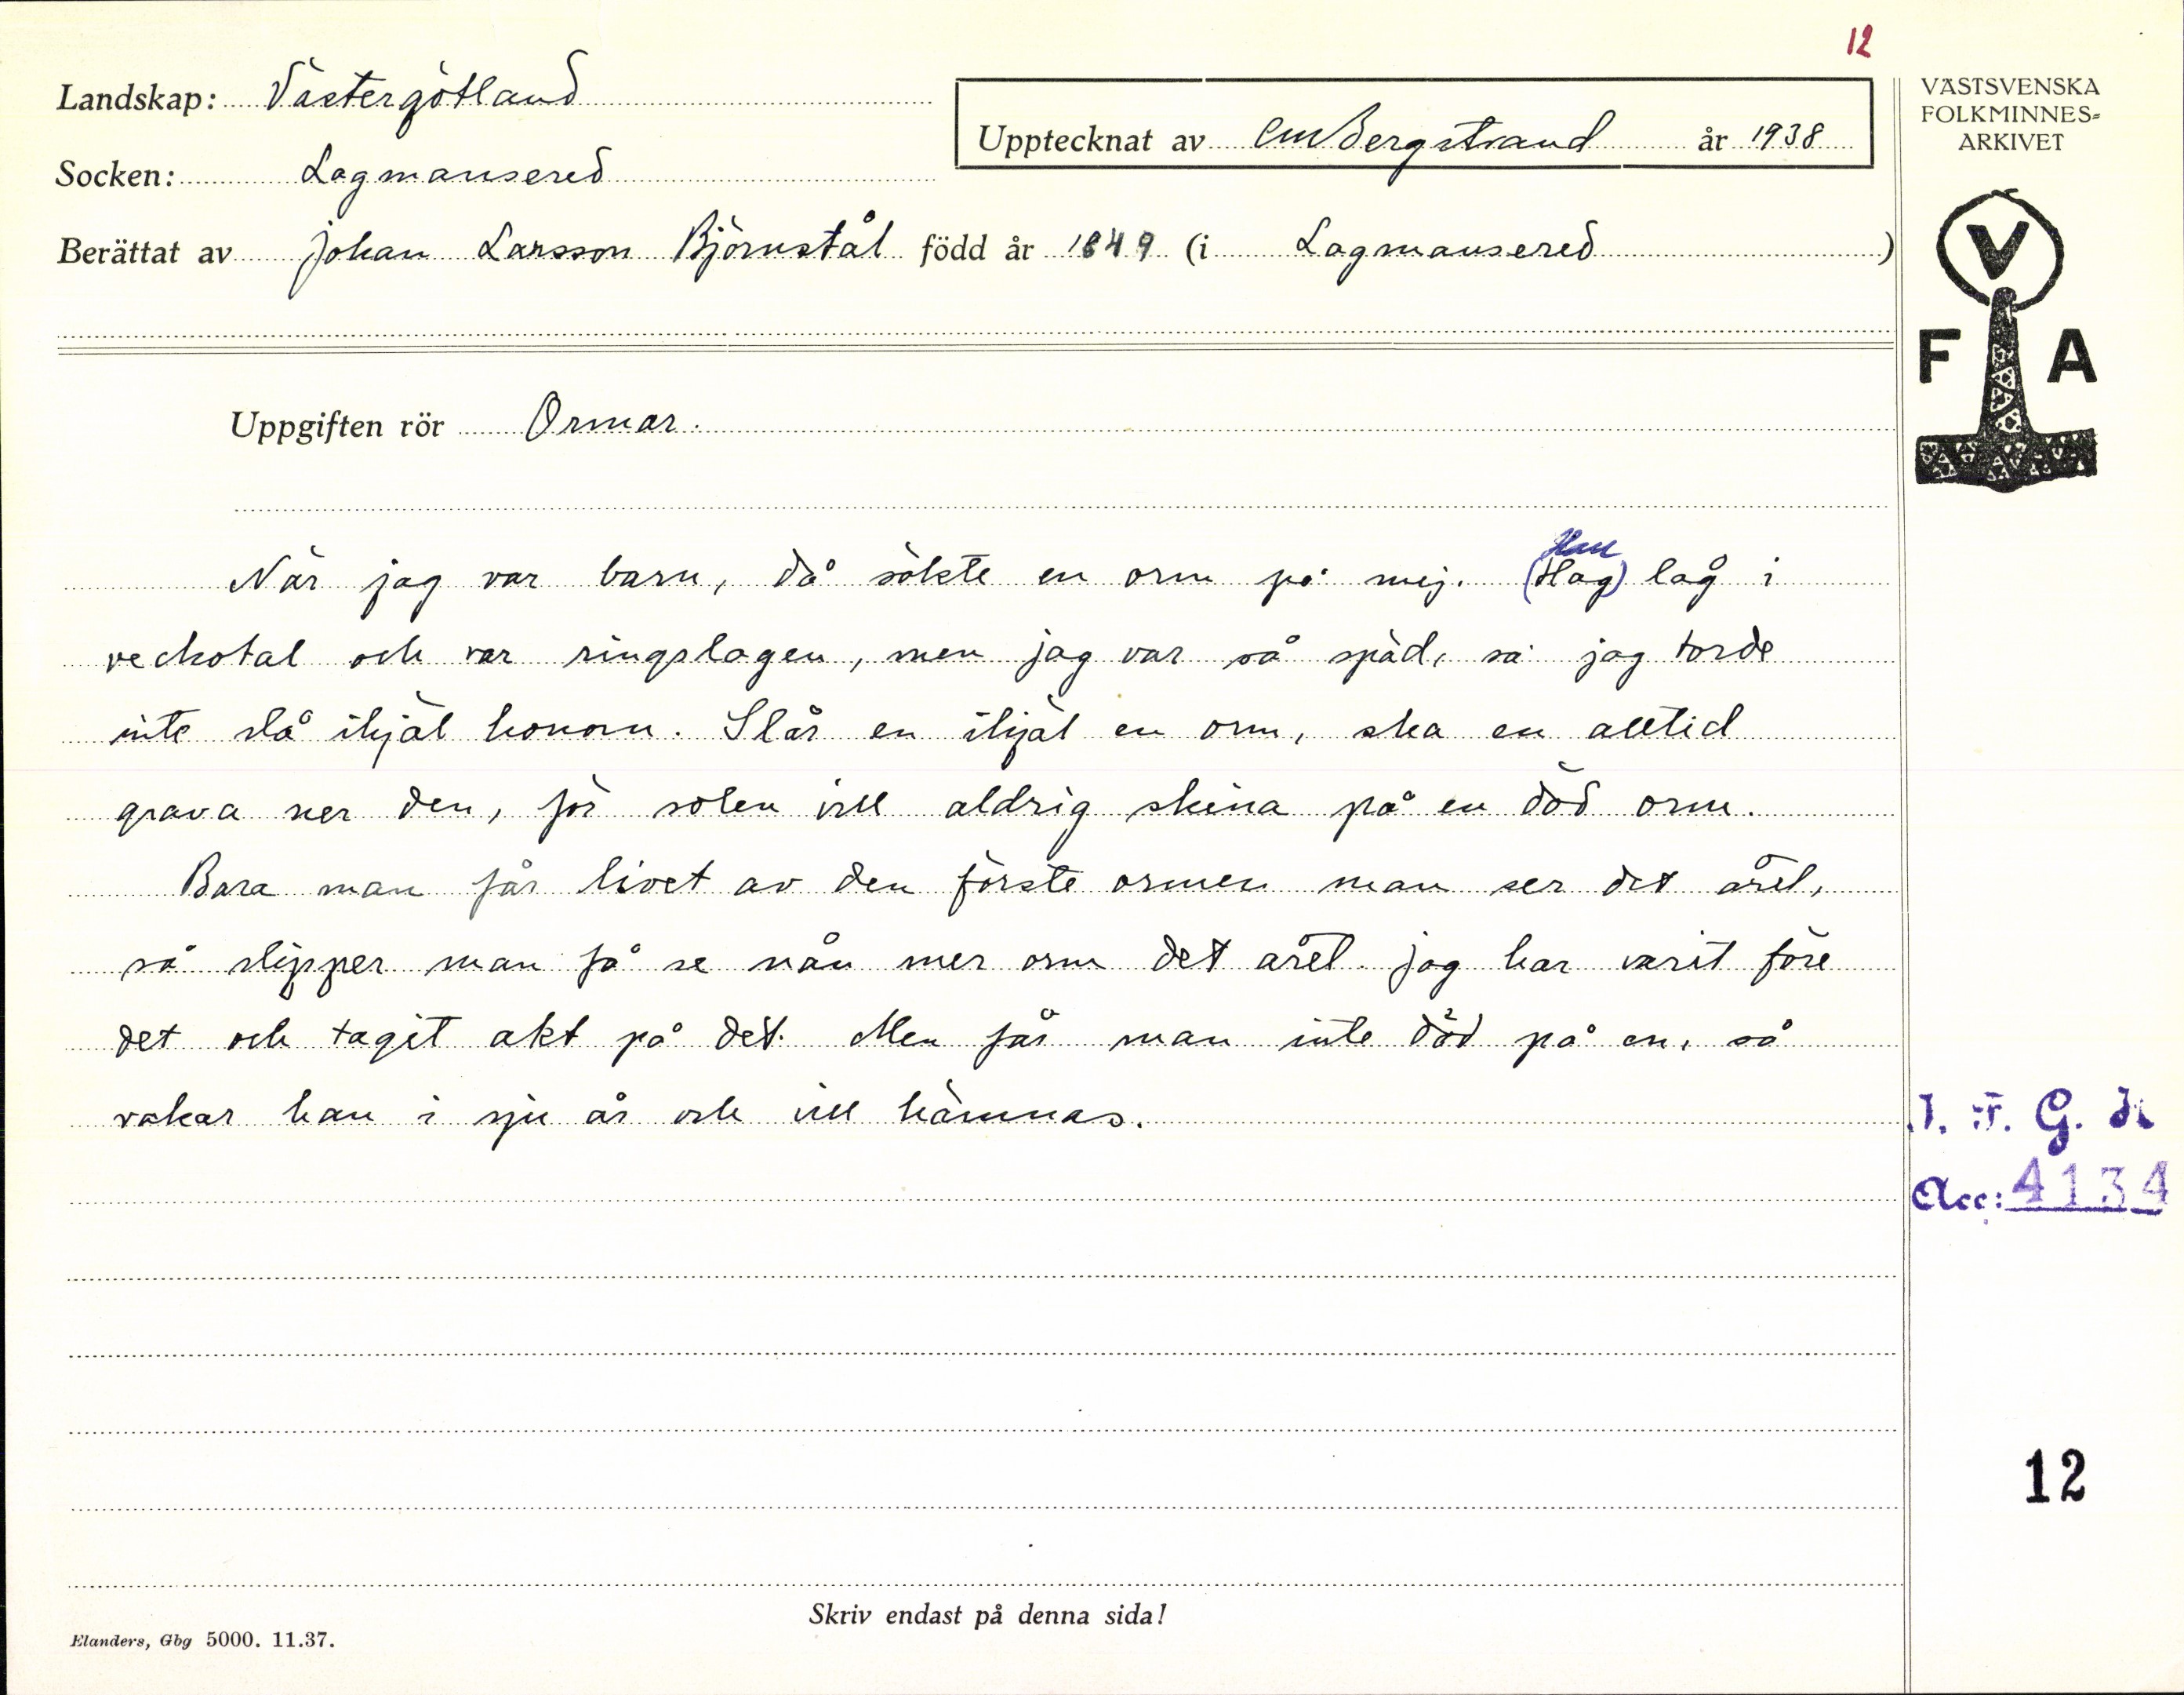 12
Landskap: Västergötland
Upptecknat av CMBergstrand år 1938
Socken: Lagmansered
Berättat av Johan Larsson Björnstål född år 1849 (i Lagmansered)
VÄSTSVENSKA
FOLKMINNES=
ARKIVET
V
F A
Uppgiften rör Ormar.
Han
När jag var barn, då sökte en orm på mej. (Hag) låg i
veckotal och var ringslagen, men jag var så späd, så jag torde
inte slå ihjäl honom. Slår en ihjäl en orm, ska en alltid
grava ner den, för solen vill aldrig skina på en död orm.
Bara man får livet av den förste ormen man ser det året,
så slipper man få se nån mer orm det året. Jag har varit före
det och tagit akt på det. Men får man inte död på en, så
vakar han i sju år och vill hämnas.
G.
Acc: 4134
12
Skriv endast på denna sida!
Elanders, Gbg 5000. 11.37.